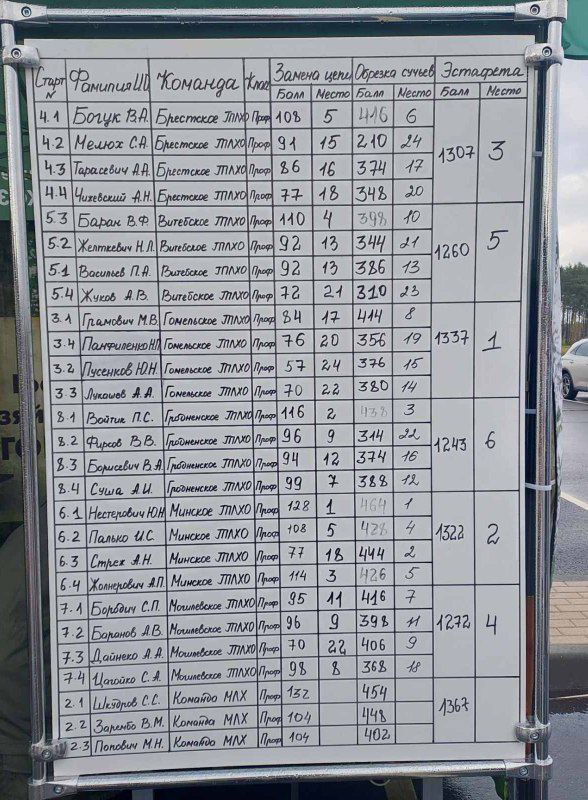 Старт N Фамилия И.О Команда Класс Замена цепи Обрезка сучьев Эстафета
Балл Место Балл Место Балл Место
4.1 Богук В.А. Брестское ГПЛХО Проф 108 5 416 6
4.2 Мелюх С.А. Брестское ГПЛХО Проф 91 15 210 24
1307 3
4.3 Тарасевич А.А. Брестское ГПЛХО Проф 86 16 374 17
4.4 Чижевский А.Н. Брестское ГПЛХО Проф 77 18 348 20
5.3 Баран В.Ф. Витебское ГПЛХО Проф 110 4 398 10
5.2 Желткевич Н.Л. Витебское ГПЛХО Проф 92 13 344 21
1260 5
5.1 Васильев П.А. Витебское ГПЛХО Проф 92 13 386 13
5.4 Жуков А.В. Витебское ГПЛХО Проф 72 21 310 23
3.1 Грамович М.В. Гомельское ГПЛХО Проф 84 17 414 8
3.4 Панфиленко Н.П. Гомельское ГПЛХО Проф 76 20 356 19
1337 1
3.2 Пусенков Ю.Н. Гомельское ГПЛХО Проф 57 24 376 15
3.3 Лукашов А.А. Гомельское ГПЛХО Проф 70 22 380 14
8.1 Войтик П.С. Гродненское ГПЛХО Проф 116 2 438 3
8.2 Фирсов В.В. Гродненское ГПЛХО Проф 96 9 314 22
1243 6
8.3 Борисевич В.А. Гродненское ГПЛХО Проф 94 12 374 16
8.4 Суша А.И. Гродненское ГПЛХО Проф 99 7 388 12
6.1 Нестерович Ю.Н. Минское ГПЛХО Проф 128 1 464 1
6.2 Палько И.С. Минское ГПЛХО Проф 108 5 428 4
1322 2
6.3 Стрех А.Н. Минское ГПЛХО Проф 77 18 444 2
6.4 Жолнерович А.П. Минское ГПЛХО Проф 114 3 426 5
7.1 Бородич С.П. Могилевское ГПЛХО Проф 95 11 416 7
7.2 Баранов А.В. Могилевское ГПЛХО Проф 96 9 398 11
1272 4
7.3 Дайнеко А.А. Могилевское ГПЛХО Проф 70 22 406 9
7.4 Цагойко С.А. Могилевское ГПЛХО Проф 98 8 368 18
2.1 Шкудров С.С. Команда МЛХ Проф 132 454
2.2 Зарембо В.М. Команда МЛХ Проф 104 448
1367
2.3 Попович М.Н. Команда МЛХ Проф 104 402